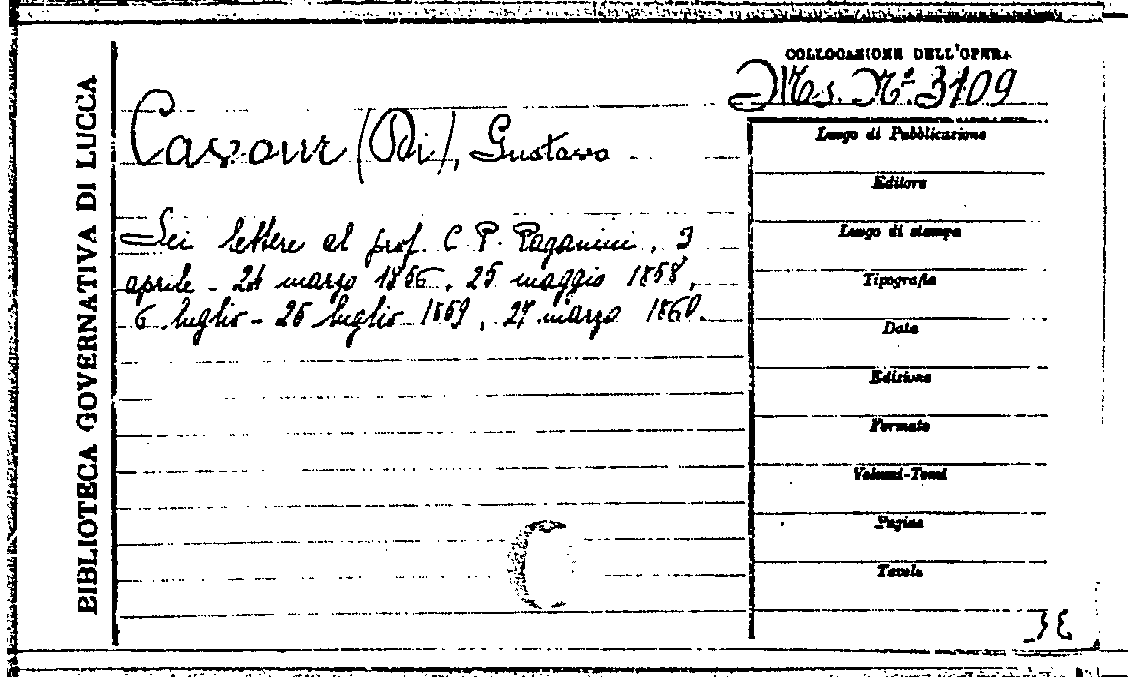 BIBLIOTECA GOVERNATIVA DI LUCCA
COLLOCAZIONE DELL'OPERA
Ms. N.º 3109
Cavour (Di), Gustavo
Sei lettere al prof. C. P. Paganini, 3
aprile - 24 marzo 1856, 25 maggio 1858,
6 luglio - 26 luglio 1859, 27 marzo 1860.
Luogo di Pubblicazione
Editore
Luogo di stampa
Tipografia
Data
Edizione
Formato
Volumi-Tomi
Pagine
Tavole